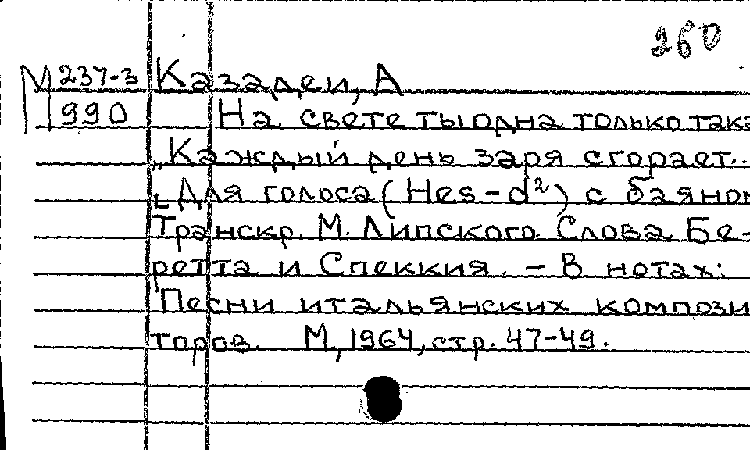 260
М 237-3 Казадеи, А
990 На свете ты одна только така
„Каждый день заря сгорает..
[Для голоса (Hes-d²) с баяном
Транскр. М. Липского. Слова Бе-
ретта и Спеккия. – В нотах:
Песни итальянских компози
торов. М, 1964, стр. 47-49.